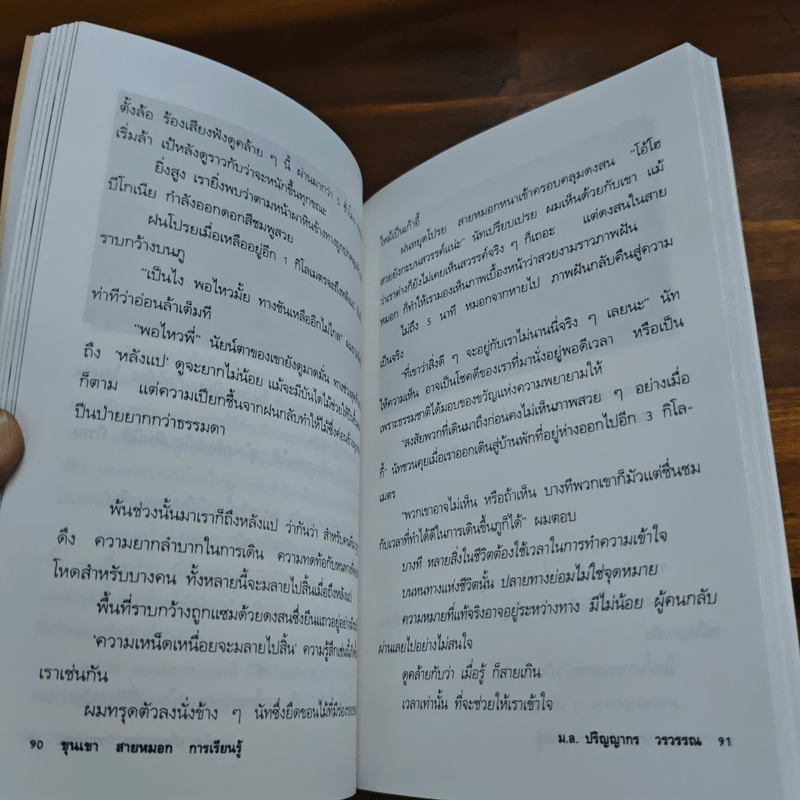 ตั้งล้อ ร้องเสียงฟังดูคล้าย ๆ นี้ ผ่านมากว่า 5
เริ่มล้า เป้หลังดูราวกับว่าจะหนักขึ้นทุกขณะ
ยิ่งสูง เรายิ่งพบว่าตามหน้าผาหินข้างทาง
บีโกเนีย กำลังออกดอกสีชมพูสวย
ฝนโปรยเมื่อเหลืออยู่อีก 1 กิโลเมตรจะถึง
ราบกว้างบนภู
"เป็นไง พอไหวมั้ย ทางชันเหลืออีกไม่ไกล"
ท่าทีว่าอ่อนล้าเต็มที
"พอไหวพี่" นัยน์ตาของเขายังดูมาดมั่น
ถึง 'หลังแป' ดูจะยากไม่น้อย แม้จะมีบันไดไม้ช่วยให้
ก็ตาม แต่ความเปียกชื้นจากฝนกลับทำให้ไม้ซึ่งค่อนข้าง
ปีนป่ายยากกว่าธรรมดา
พ้นช่วงนั้นมาเราก็ถึงหลังแป ว่ากันว่า สำหรับ
ดึง ความยากลำบากในการเดิน ความทดท้อกับหนทาง
โหดสำหรับบางคน ทั้งหลายนี้จะมลายไปสิ้นเมื่อถึงหลังแป
พื้นที่ราบกว้างถูกแซมด้วยดงสนซึ่งยืนแถวอยู่
'ความเหน็ดเหนื่อยจะมลายไปสิ้น' ความรู้สึกเช่นนี้
เราเช่นกัน
ผมทรุดตัวลงนั่งข้าง ๆ นัทซึ่งยึดขอนไม้ที่มีร่อง
90 ขุนเขา สายหมอก การเรียนรู้
ไหม้เป็นเก้าอี้
ฝนหยุดโปรย สายหมอกหนาเข้าครอบคลุมดงสน "โอ้โฮ
สวยยังกะบนสวรรค์แน่ะ" นัทเปรียบเปรย ผมเห็นด้วยกับเขา แม้
ว่าเราต่างก็ยังไม่เคยเห็นสวรรค์จริง ๆ ก็เถอะ แต่ดงสนในสาย
หมอก ก็ทำให้เรามองเห็นภาพเบื้องหน้าว่าสวยงามราวภาพฝัน
ไม่ถึง 5 นาที หมอกจางหายไป ภาพฝันกลับคืนสู่ความ
เป็นจริง
"ที่เขาว่าสิ่งดี ๆ จะอยู่กับเราไม่นานนี่จริง ๆ เลยนะ" นัท
ให้ความเห็น อาจเป็นโชคดีของเราที่มานั่งอยู่พอดีเวลา หรือเป็น
เพราะธรรมชาติได้มอบของขวัญแห่งความพยายามให้
"สงสัยพวกที่เดินมาถึงก่อนคงไม่เห็นภาพสวย ๆ อย่างเมื่อ
กี้" นัทชวนคุยเมื่อเราออกเดินสู่บ้านพักที่อยู่ห่างออกไปอีก 3 กิโล-
เมตร
"พวกเขาอาจไม่เห็น หรือถ้าเห็น บางทีพวกเขาก็มัวแต่ชื่นชม
กับเวลาที่ทำได้ดีในการเดินขึ้นภูก็ได้" ผมตอบ
บางที หลายสิ่งในชีวิตต้องใช้เวลาในการทำความเข้าใจ
บนหนทางแห่งชีวิตนั้น ปลายทางย่อมไม่ใช่จุดหมาย
ความหมายที่แท้จริงอาจอยู่ระหว่างทาง มีไม่น้อย ผู้คนกลับ
ผ่านเลยไปอย่างไม่สนใจ
ดูคล้ายกับว่า เมื่อรู้ ก็สายเกิน
เวลาเท่านั้น ที่จะช่วยให้เราเข้าใจ
ม.ล. ปริญญากร วรวรรณ 91